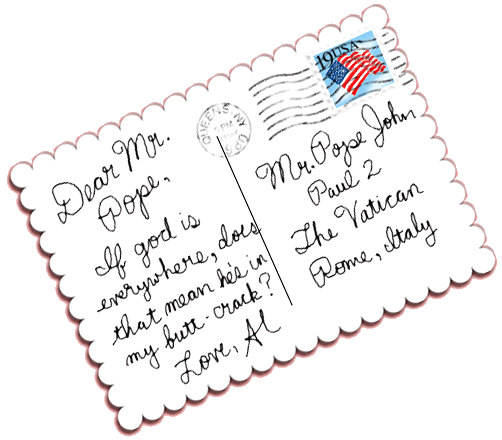 Dear Mr.
Pope,
If god is
everywhere, does
that mean he's in
my butt-crack?
Love, Al
QUEENS, NY
PM
19USA
Mr. Pope John
Paul 2
The Vatican
Rome, Italy